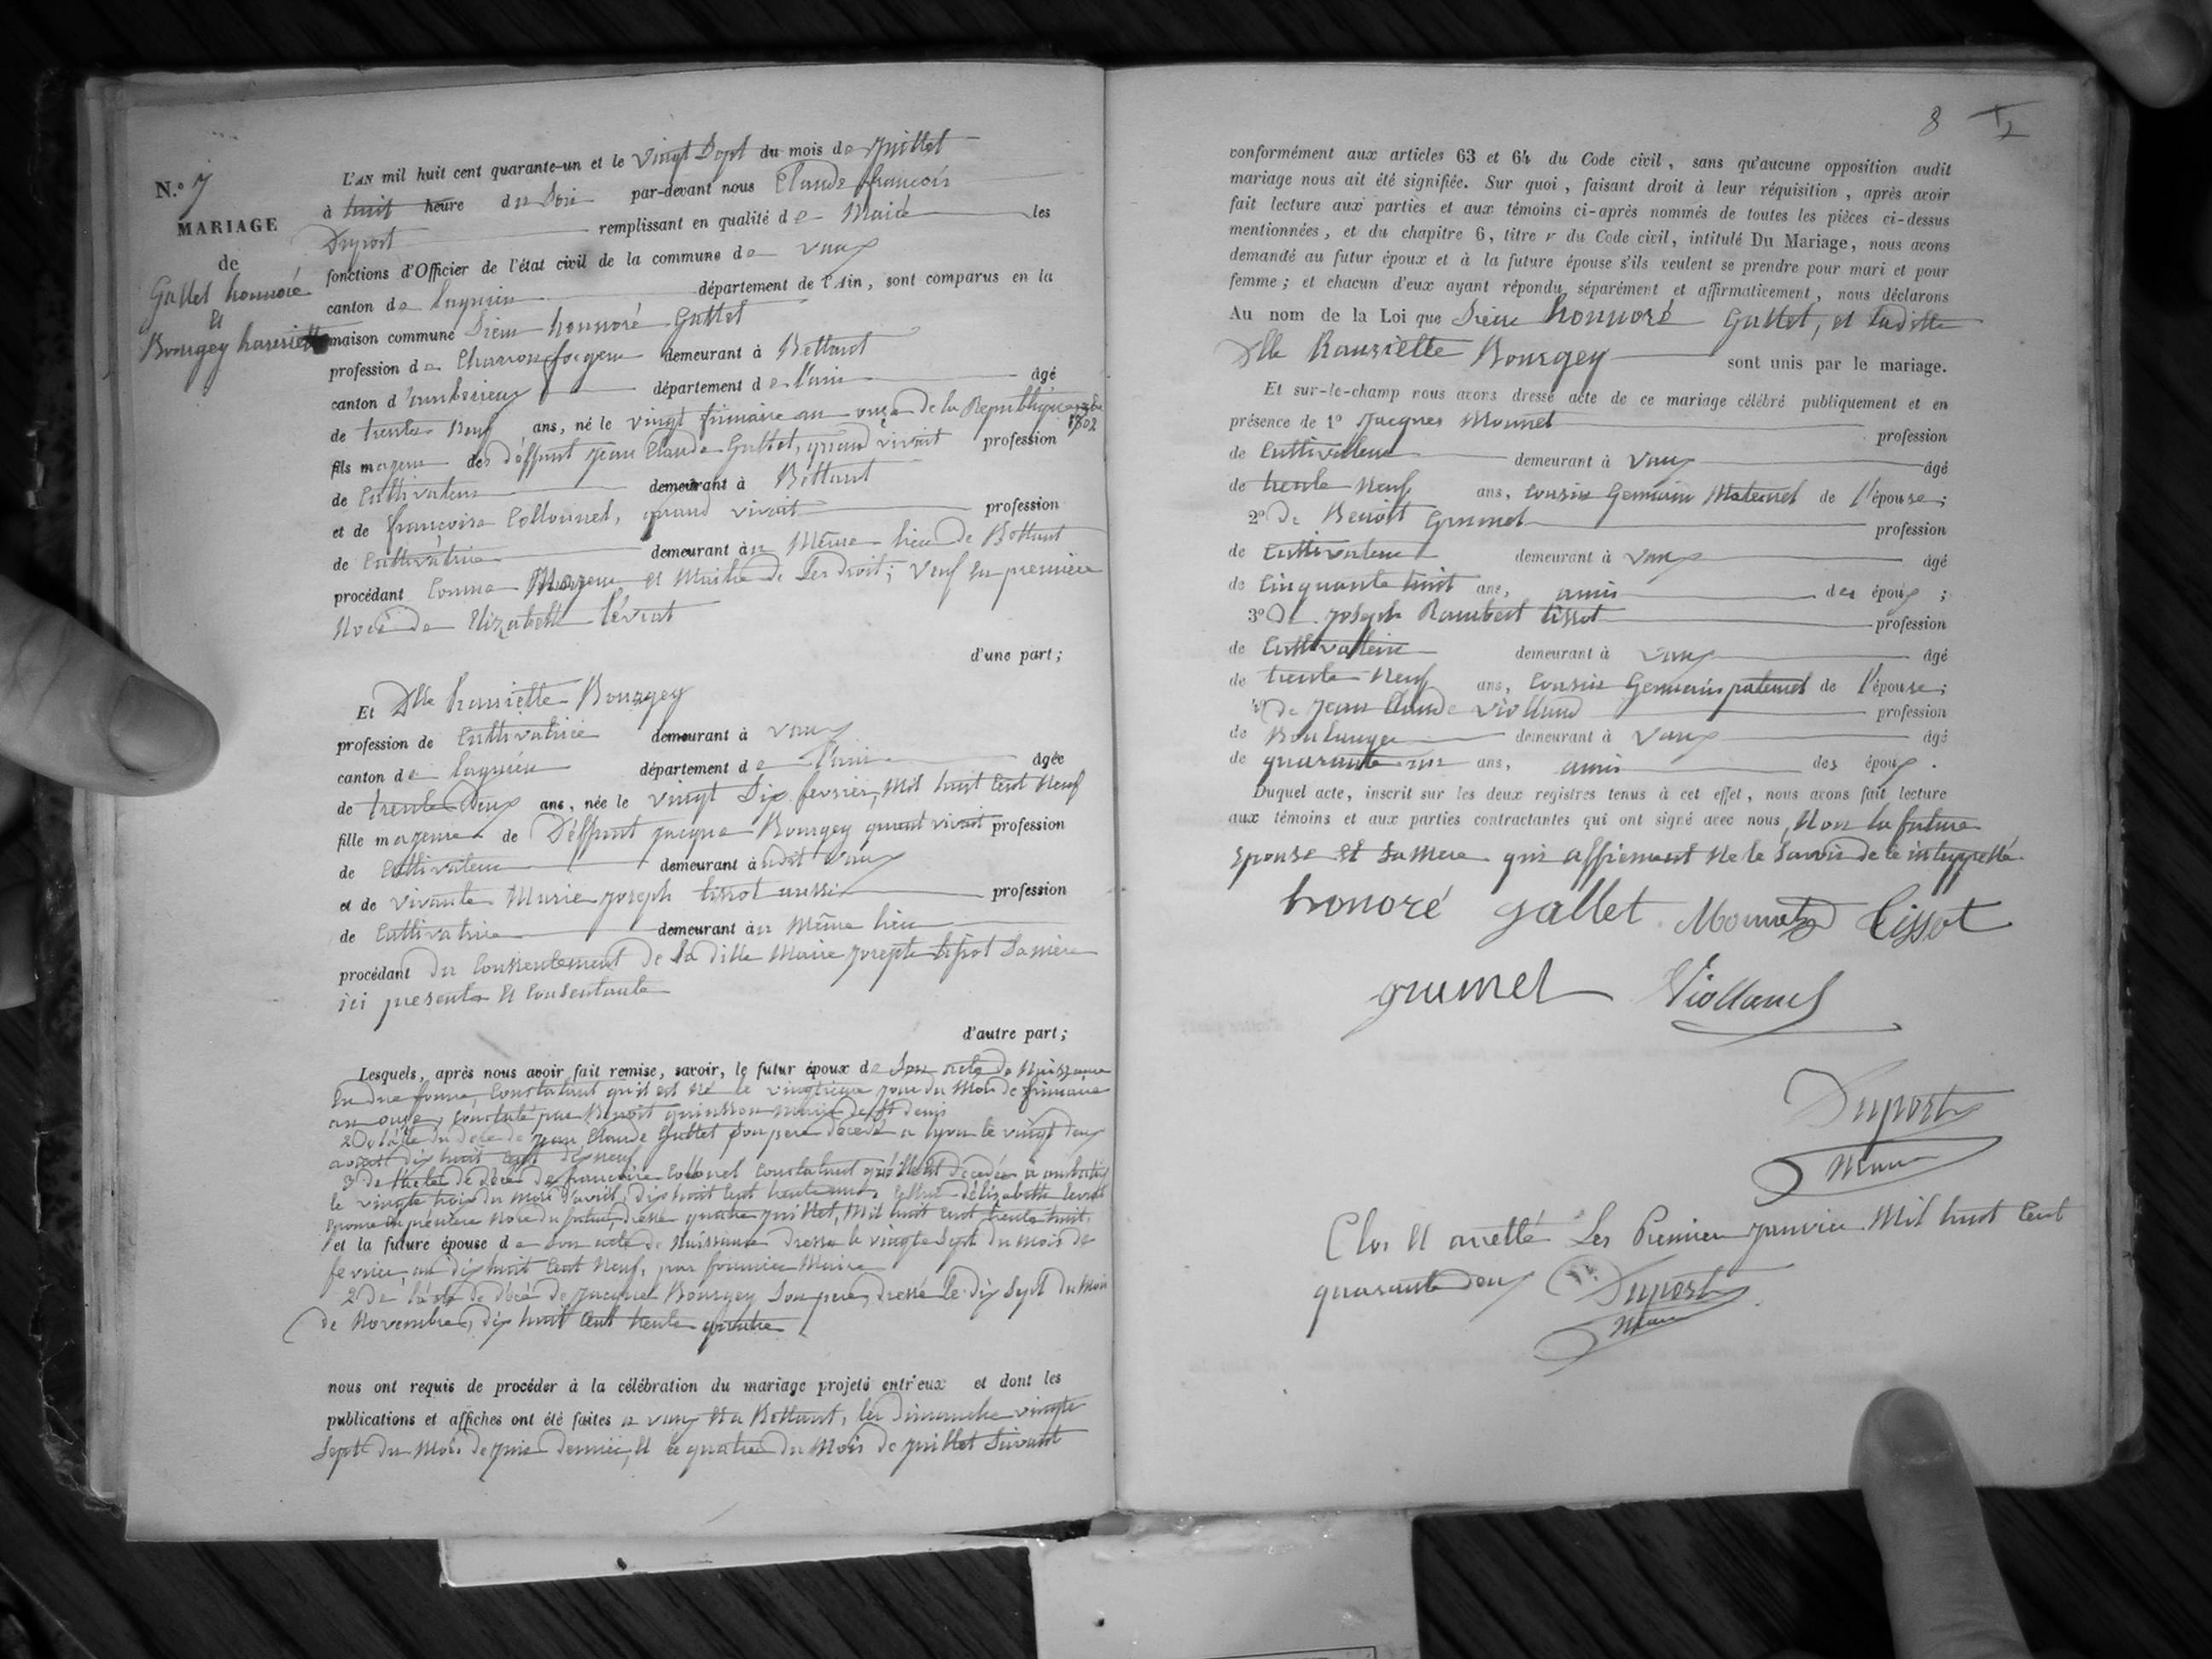 N.º 7
MARIAGE
de
Gallet honnoré
Et
Bourgey hanriette
L'AN mil huit cent quarante-un et le vingt Sept du mois de juillet
à huit heure du Soir par-devant nous Claude françois
Duport remplissant en qualité de Maire les
fonctions d'Officier de l'état civil de la commune de vaux
canton de lagnieu département de l'Ain, sont comparus en la
maison commune Sieur honnoré Gallet
profession de Charron forgeur demeurant à Bettant
canton d'ambérieux département de l'ain âgé
de trente Neuf ans, né le vingt frimaire an onze de la République 1802
fils majeur des déffunt jean Claude Gallet, quand vivait profession
de Cultivateur demeurant à Bettant
et de françoise Collounel, quand vivait profession
de Cultivatrice demeurant au Même lieu de Bettant
procédant Comme Majeur et Maitre de Ses droit; Veuf en première
Noce de Elizabeth Lévrat
d'une part;
Et Dlle hanriette Bourgey
profession de Cultivatrice demeurant à vaux
canton de lagnieu département de l'ain âgée
de trente deux ans, née le vingt Six fevrier, Mil huit Cent Neuf
fille majeure de Déffunt jacque Bourgey quant vivait profession
de Cultivateur demeurant à udit vaux
et de vivante Marie joseph tissot aussi profession
de Cultivatrice demeurant au Même lieu
procédant du Consentement de la dille Marie josepte tissot Sa mère
ici presente et Consentante
d'autre part;
Lesquels, après nous avoir fait remise, savoir, le futur époux de Son acte de Naissance
En due forme, Constatant qu'il est Né le vingtième jour du Mois de frimaire
an onze, constaté par Benoit quinson maire de St denis
2º de l'acte du décé de jean Claude Gallet Son pere décédé a lyon le vingt deux
aoust dix huit Cent dix neuf
3º de l'acte de décé de françoise Collounel Constatant qu'elle Est décédée a
le vingte trois du mois d'avril, dix huit Cent trente d'élizabette levrat
Epouse En première Noce du futur, dressé quatre juillet, Mil huit Cent trente huit
et la future épouse de Son acte de Naissance dressé le vingte Sept du mois de
fevrier, an dix huit Cent Neuf, par fournier Maire
2º De l'acte de décé de jacque Bourgey Son pere, dressé le dix Sept du Mois
de Novembre, dix huit Cent trente quatre
nous ont requis de procéder à la célébration du mariage projeté entr'eux et dont les
publications et affiches ont été faites a vaux Et a Bettant, les dimanche vingte
Sept du Mois de juin dernier, Et le quatre du Mois de juillet Suivant
8
conformément aux articles 63 et 64 du Code civil, sans qu'aucune opposition audit
mariage nous ait été signifiée. Sur quoi, faisant droit à leur réquisition, après avoir
fait lecture aux parties et aux témoins ci-après nommés de toutes les pièces ci-dessus
mentionnées, et du chapitre 6, titre v du Code civil, intitulé Du Mariage, nous avons
demandé au futur époux et à la future épouse s'ils veulent se prendre pour mari et pour
femme; et chacun d'eux ayant répondu séparément et affirmativement, nous déclarons
Au nom de la Loi que Sieur honnoré Gallet, et ladille
Dlle hanriette Bourgey sont unis par le mariage.
Et sur-le-champ nous avons dressé acte de ce mariage célébré publiquement et en
présence de 1º Jacques Monnet profession
de Cultivateur demeurant à vaux âgé
de trente Neuf ans, Cousin Germain Maternel de l'épouse;
2º De Benoitt Grumet profession
de Cultivateur demeurant à vaux âgé
de Cinquante huit ans, amis des époux;
3º De joseph Rambert tissot profession
de Cultivateur demeurant à vaux âgé
de trente Neuf ans, Cousin Germain paternel de l'épouse;
4º De jean Claude Violland profession
de Boulanger demeurant à vaux âgé
de quarante un ans, amis des époux.
Duquel acte, inscrit sur les deux registres tenus à cet effet, nous avons fait lecture
aux témoins et aux parties contractantes qui ont signé avec nous, Non la future
Epouse Et Sa mere qui affirment Ne le Savoir de ce interppellé
honoré gallet Monnet Tissot
grumel Violland
Duport
Maire
Clos Et arretté Les Premier janvier Mil huit Cent
quarante deux Duport
Maire